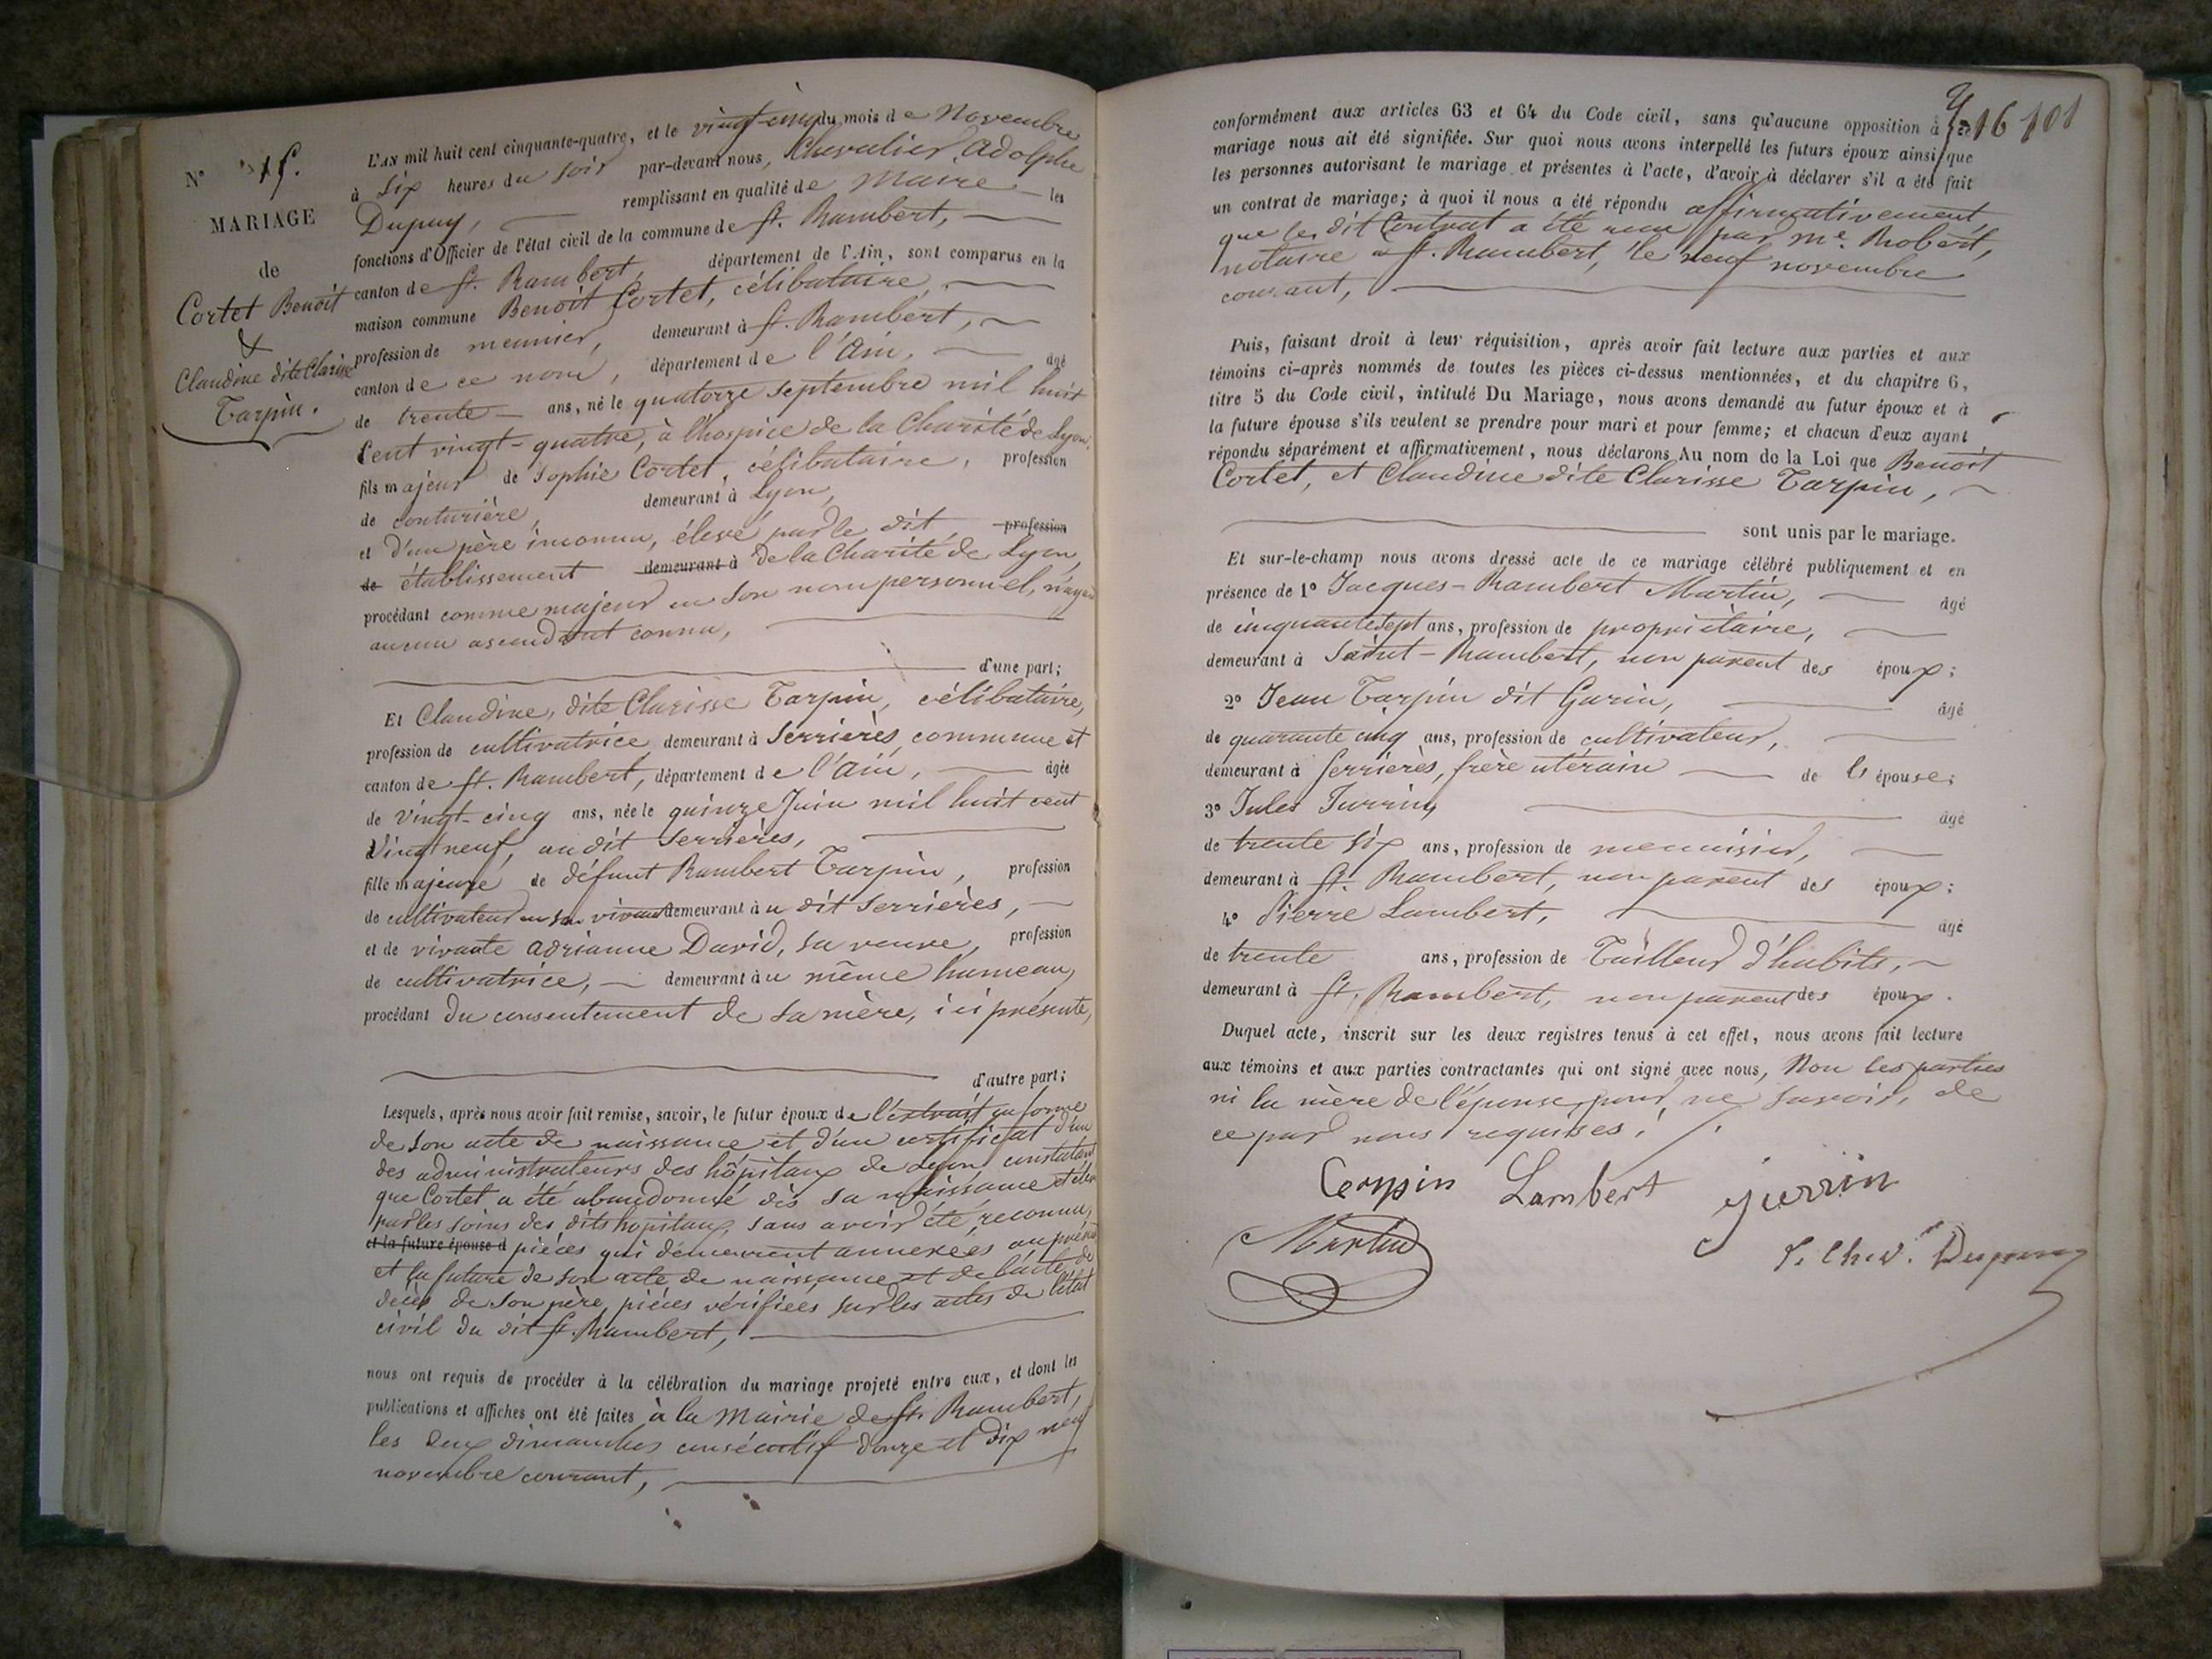 N° 15.
MARIAGE
de
Cortet Benoit
&
Claudine dite Clarisse
Tarpin.
L'AN mil huit cent cinquante-quatre, et le vingt-cinq du mois de Novembre
à six heures du soir par-devant nous, Chevalier Adolphe
Dupuy, remplissant en qualité de Maire les
fonctions d'Officier de l'état civil de la commune de St. Rambert,
canton de St. Rambert, département de l'Ain, sont comparus en la
maison commune Benoit Cortet, célibataire,
profession de meunier, demeurant à St. Rambert,
canton de ce nom, département de l'Ain, âgé
de trente ans, né le quatorze septembre mil huit
cent vingt-quatre, à l'hospice de la Charité de Lyon,
fils majeur de Sophie Cortet, célibataire, profession
de couturière, demeurant à Lyon,
et d'un père inconnu, élevé par le dit profession
de établissement demeurant à de la Charité de Lyon,
procédant comme majeur en son nom personnel, n'ayant
aucun ascendant connu,
d'une part;
Et Claudine, dite Clarisse Tarpin, célibataire,
profession de cultivatrice demeurant à Serrières, commune et
canton de St. Rambert, département de l'Ain, âgée
de vingt-cinq ans, née le quinze Juin mil huit cent
vingt neuf, au dit Serrières,
fille majeure de défunt Rambert Tarpin, profession
de cultivateur en son vivant demeurant au dit Serrières,
et de vivante Adrianne David, sa veuve, profession
de cultivatrice, demeurant au même hameau,
procédant du consentement de sa mère, ici présente,
d'autre part;
Lesquels, après nous avoir fait remise, savoir, le futur époux de l'extrait en forme
de son acte de naissance et d'un certificat d'un
des administrateurs des hôpitaux de Lyon constatant
que Cortet a été abandonné dès sa naissance et élevé
par les soins des dits hopitaux, sans avoir été reconnu,
et la future épouse d pièces qui demeurent annexées au présent
et la future de son acte de naissance et de l'acte de
décès de son père, pièces vérifiées sur les actes de l'état
civil du dit St. Rambert,
nous ont requis de procéder à la célébration du mariage projeté entre eux, et dont les
publications et affiches ont été faites à la Mairie de St. Rambert,
les deux dimanches consécutif douze et dix neuf
novembre courant,
16 101
conformément aux articles 63 et 64 du Code civil, sans qu'aucune opposition à ce
mariage nous ait été signifiée. Sur quoi nous avons interpellé les futurs époux ainsi que
les personnes autorisant le mariage et présentes à l'acte, d'avoir à déclarer s'il a été fait
un contrat de mariage; à quoi il nous a été répondu affirmativement,
que le dit Contrat a été reçu par Me. Robert,
notaire à St. Rambert, le neuf novembre
courant,
Puis, faisant droit à leur réquisition, après avoir fait lecture aux parties et aux
témoins ci-après nommés de toutes les pièces ci-dessus mentionnées, et du chapitre 6,
titre 5 du Code civil, intitulé Du Mariage, nous avons demandé au futur époux et à
la future épouse s'ils veulent se prendre pour mari et pour femme; et chacun d'eux ayant
répondu séparément et affirmativement, nous déclarons Au nom de la Loi que Benoit
Cortet, et Claudine dite Clarisse Tarpin,
sont unis par le mariage.
Et sur-le-champ nous avons dressé acte de ce mariage célébré publiquement et en
présence de 1° Jacques-Rambert Martin, âgé
de cinquante sept ans, profession de propriétaire,
demeurant à Saint-Rambert, non parent des époux;
2° Jean Tarpin dit Garin, âgé
de quarante cinq ans, profession de cultivateur,
demeurant à Serrières, frère utérain de l'épouse;
3° Jules Jurrin, âgé
de trente six ans, profession de menuisier,
demeurant à St. Rambert, non parent des époux;
4° Pierre Lambert, âgé
de trente ans, profession de Tailleur d'habits,
demeurant à St. Rambert, non parent des époux.
Duquel acte, inscrit sur les deux registres tenus à cet effet, nous avons fait lecture
aux témoins et aux parties contractantes qui ont signé avec nous, Non les parties
ni la mère de l'épouse, pour ne savoir, de
ce par nous requises.
Terpin Lambert jurrin
Martin
Chev. Dupuy